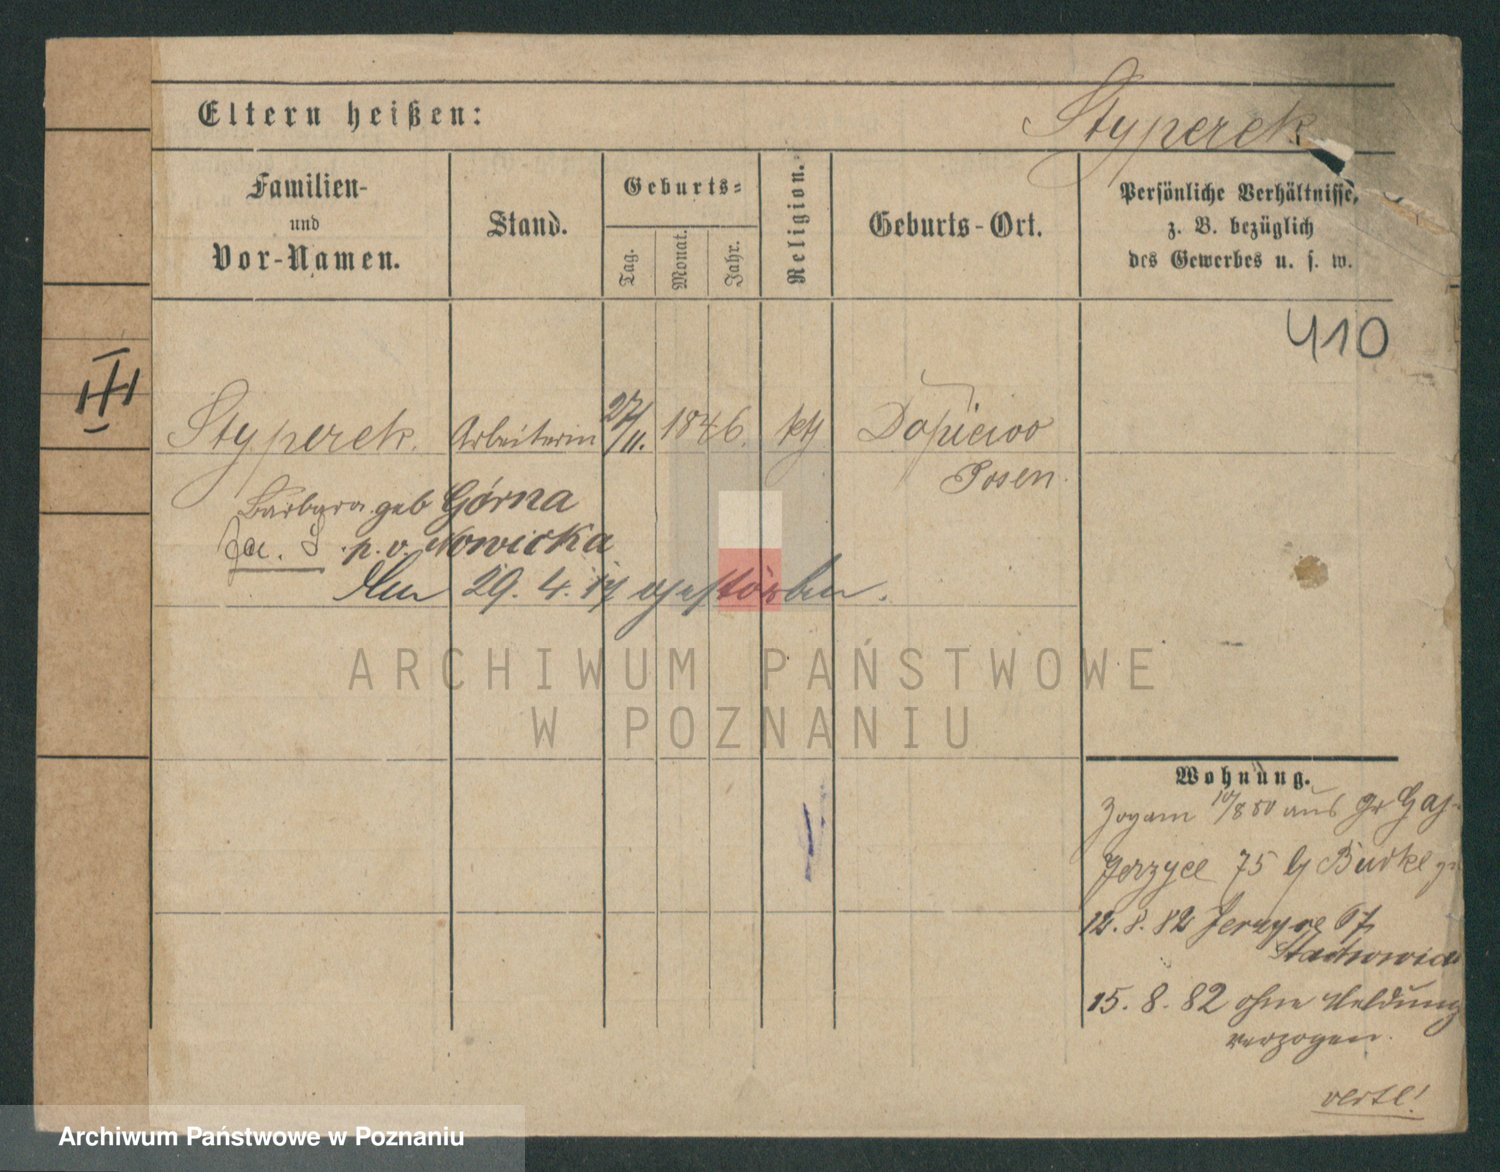 Eltern heißen:
Styperek
Familien-
und
Vor-Namen.
Stand.
Geburts-
Tag.
Monat.
Jahr.
Religion.
Geburts-Ort.
Persönliche Verhältnisse,
z. B. bezüglich
des Gewerbes u. s. w.
410
III
Styperek. Arbeiterin 27/11. 1846. kth Dopiewo
Posen.
Barbara geb Górna
p. v. Nowicka
Am 29. 4. 17 gestorben.
ARCHIWUM PAŃSTWOWE
W POZNANIU
Wohnung.
Zogam 10/8 80 aus Gr Gaj-
Jerzyce 75 b Budke
12. 8. 82 Jerzyce 67
Stachowiak
15. 8. 82 ohne Meldung
verzogen.
verte!
Archiwum Państwowe w Poznaniu